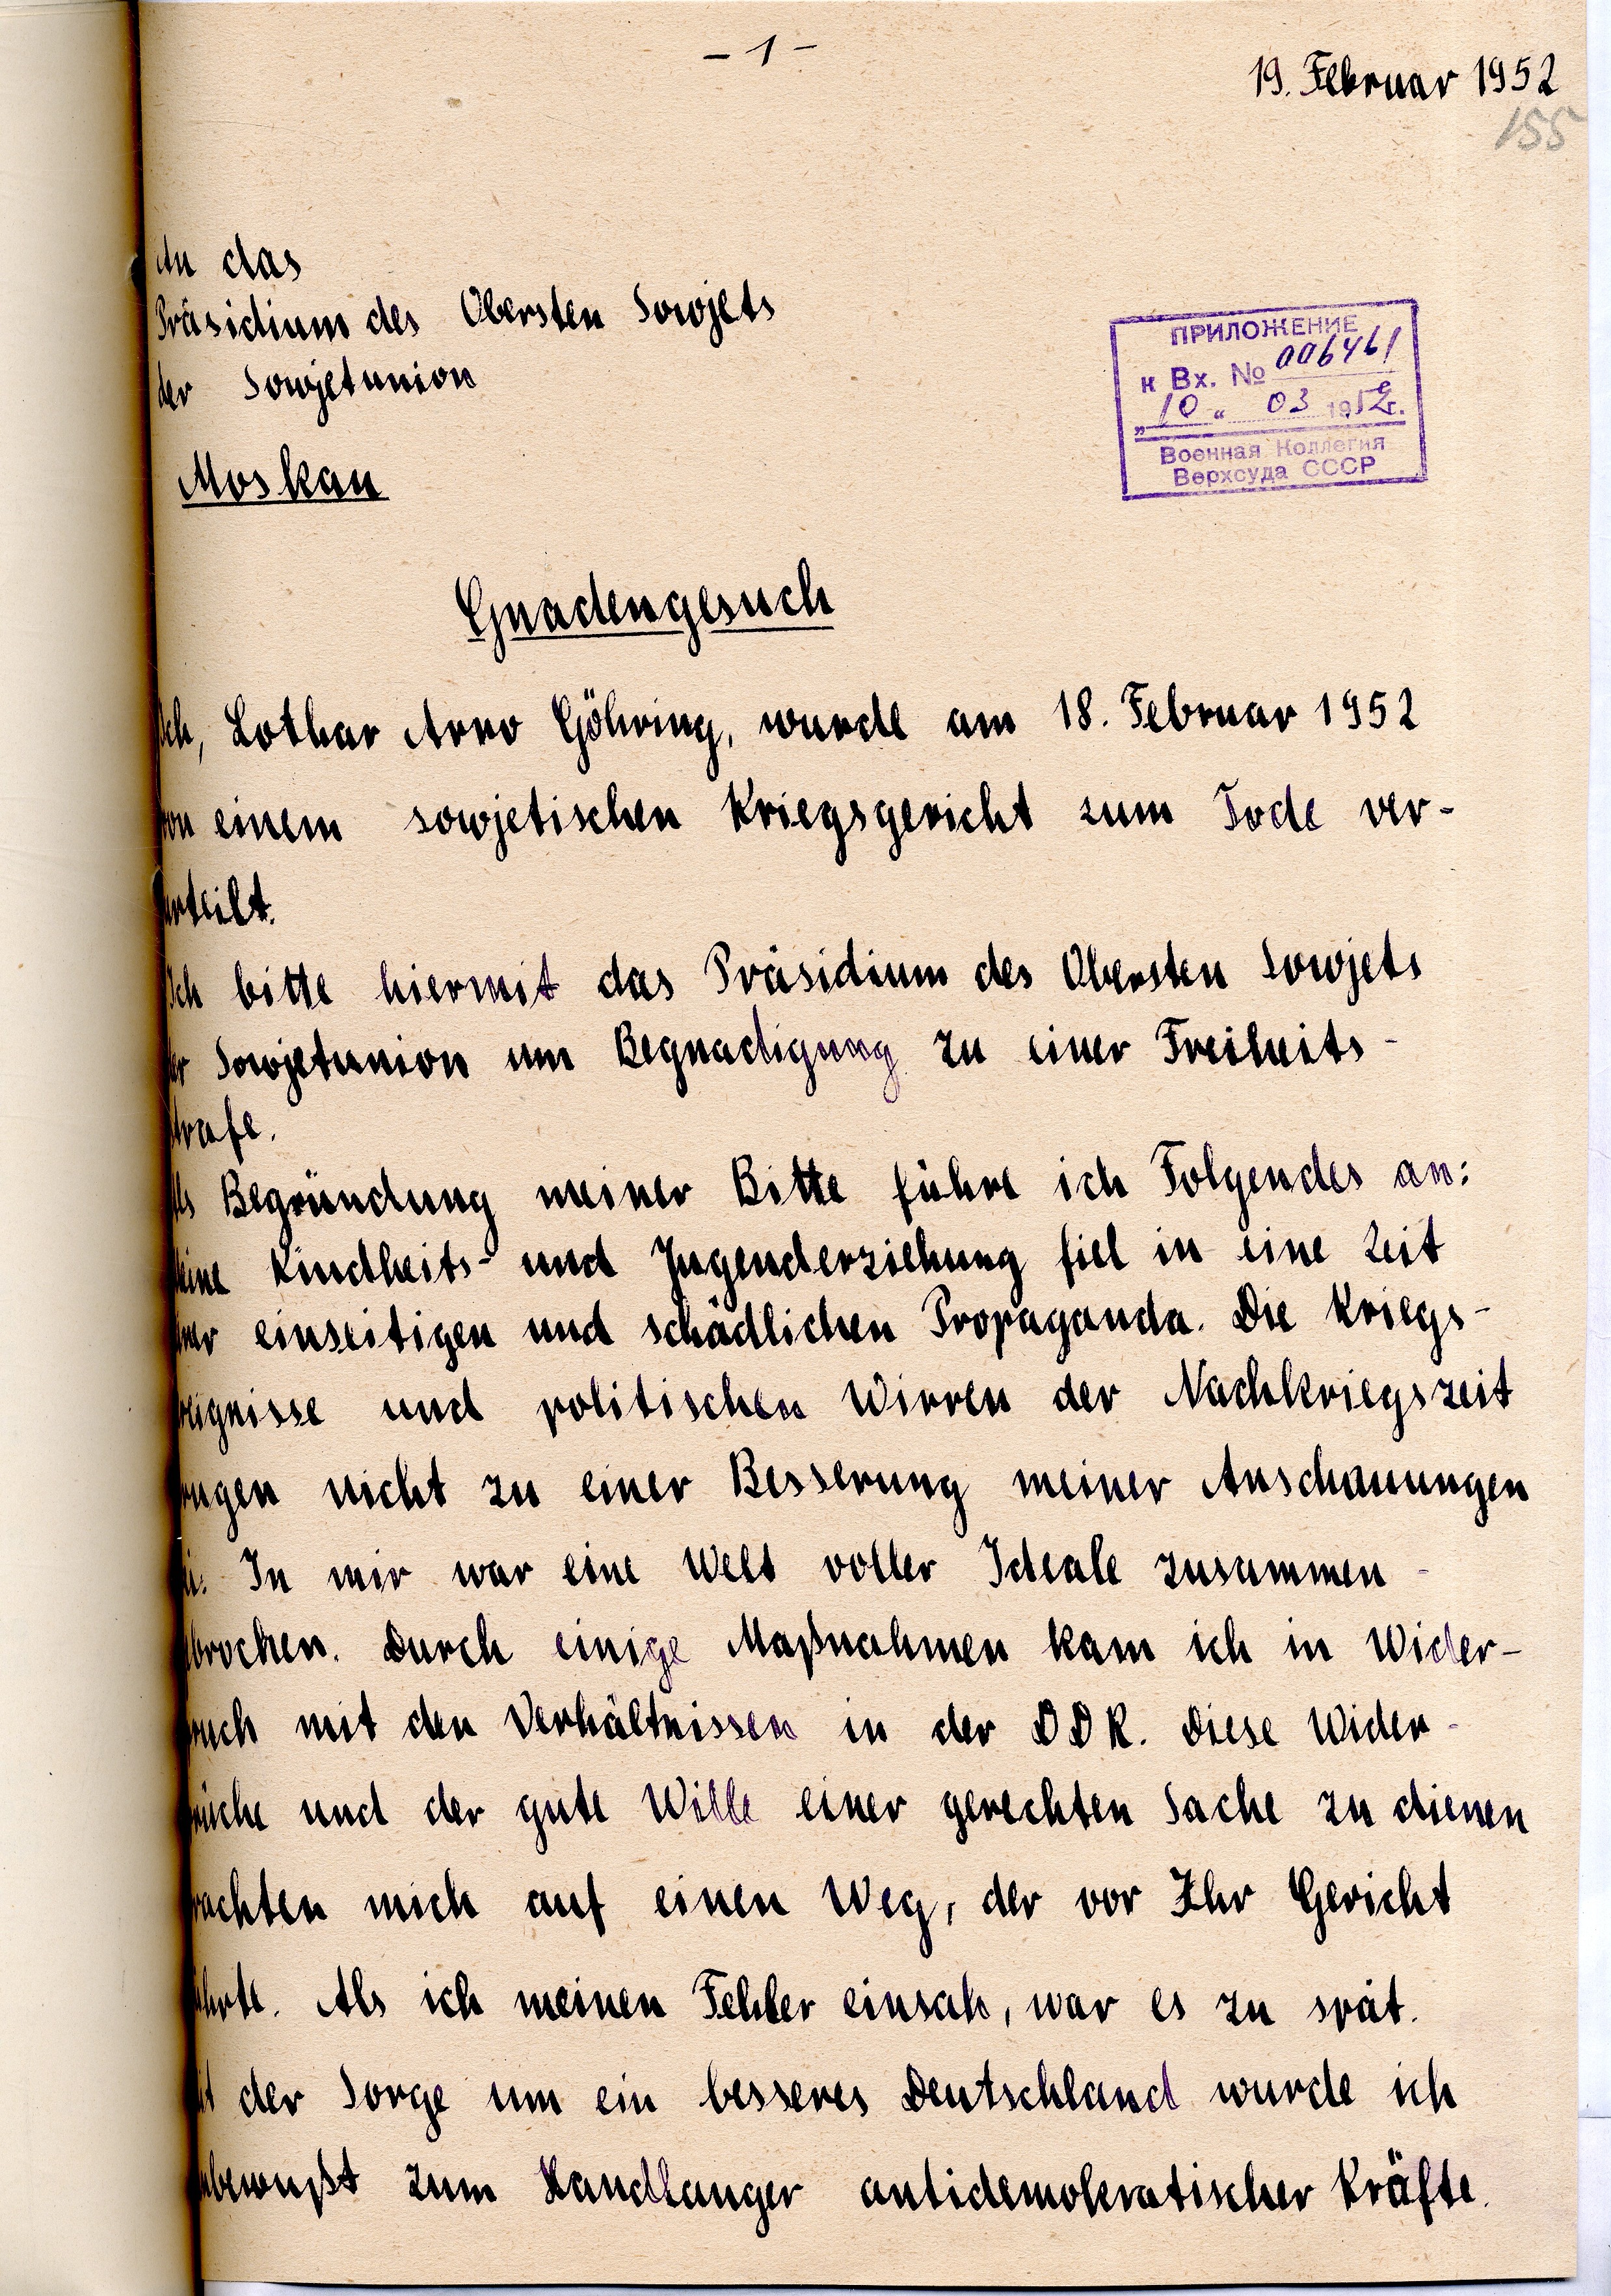 - 1 -
19. Februar 1952
155
An das
Präsidium des Obersten Sowjets
der Sowjetunion
Moskau
ПРИЛОЖЕНИЕ
к Вх. № 006461
„10“ 03 1952г.
Военная Коллегия
Верхсуда СССР
Gnadengesuch
Ich, Lothar Arno Göhring, wurde am 18. Februar 1952
von einem sowjetischen Kriegsgericht zum Tode ver-
urteilt.
Ich bitte hiermit das Präsidium des Obersten Sowjets
der Sowjetunion um Begnadigung zu einer Freiheits-
strafe.
Als Begründung meiner Bitte führe ich Folgendes an:
eine Kindheits- und Jugenderziehung fiel in eine Zeit
einseitigen und schädlichen Propaganda. Die Kriegs-
eignisse und politischen Wirren der Nachkriegszeit
ugen nicht zu einer Besserung meiner Anschauungen
In mir war eine Welt voller Ideale zusammen-
brochen. Durch einige Maßnahmen kam ich in Wider-
ruch mit den Verhältnissen in der DDR. Diese Wider-
rüche und der gute Wille einer gerechten Sache zu dienen
rachten mich auf einen Weg, der vor Ihr Gericht
ührte. Als ich meinen Fehler einsah, war es zu spät.
it der Sorge um ein besseres Deutschland wurde ich
nbewußt zum Handlanger antidemokratischer Kräfte.